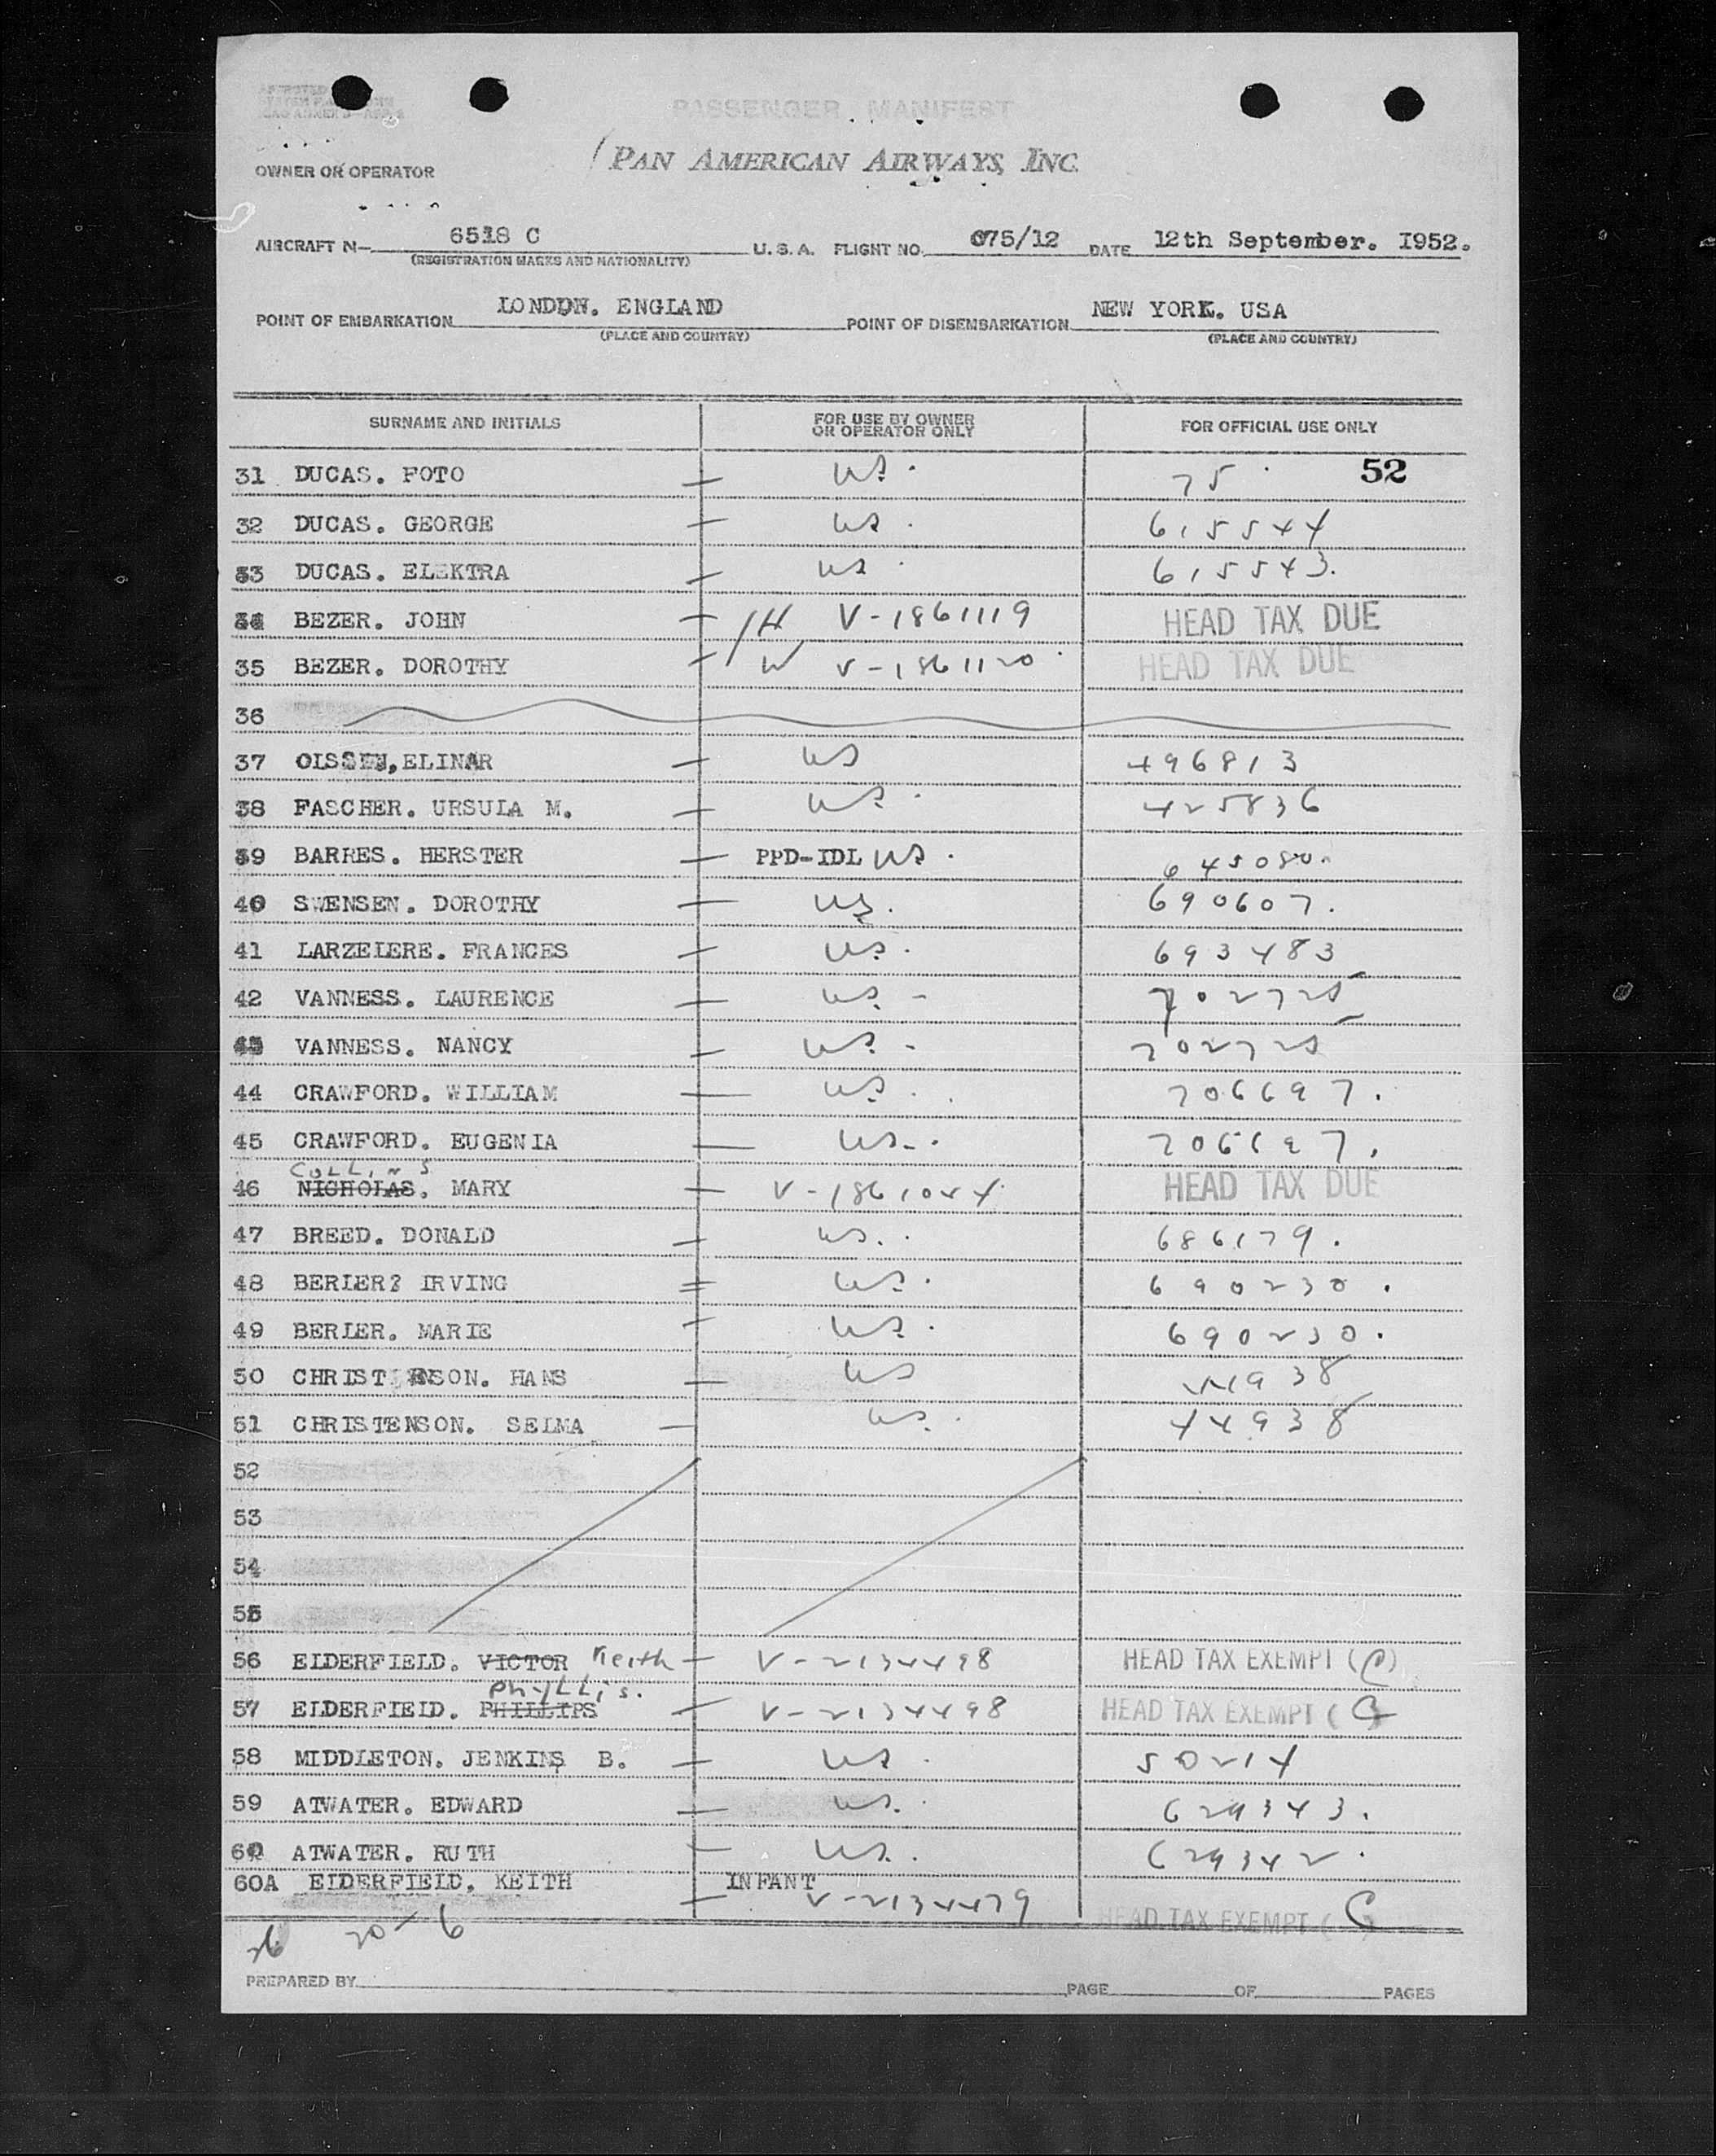 PASSENGER MANIFEST
PAN AMERICAN AIRWAYS, INC.
OWNER OR OPERATOR
AIRCRAFT N- 6518 C U.S.A. FLIGHT NO. 075/12 DATE 12th September. 1952.
(REGISTRATION MARKS AND NATIONALITY)
POINT OF EMBARKATION LONDON. ENGLAND POINT OF DISEMBARKATION NEW YORK. USA
(PLACE AND COUNTRY) (PLACE AND COUNTRY)
SURNAME AND INITIALS FOR USE BY OWNER OR OPERATOR ONLY FOR OFFICIAL USE ONLY
31 DUCAS. FOTO — US. 75 52
32 DUCAS. GEORGE — US. 615544
33 DUCAS. ELEKTRA — US. 615543.
34 BEZER. JOHN — H V-1861119 HEAD TAX DUE
35 BEZER. DOROTHY — W V-1861120 HEAD TAX DUE
36
37 OLSSEN, ELINAR — US 496813
38 FASCHER. URSULA M. — US. 425836
39 BARRES. HERSTER — PPD-IDL US. 645080.
40 SWENSEN. DOROTHY — US. 690607.
41 LARZELERE. FRANCES — US. 693483
42 VANNESS. LAURENCE — US. - 702725
43 VANNESS. NANCY — US. - 702725
44 CRAWFORD. WILLIAM — US. 706697.
45 CRAWFORD. EUGENIA — US-. 706697.
COLLINS
46 NICHOLAS. MARY — V-1861044 HEAD TAX DUE
47 BREED. DONALD — US. 686179.
48 BERLER? IRVING = US. 690230.
49 BERLER. MARIE — US. 690230.
50 CHRISTENSON. HANS — US 44938
51 CHRISTENSON. SELMA — US. 44938
52
53
54
55
56 ELDERFIELD. VICTOR Keith — V-2134498 HEAD TAX EXEMPT (C)
PhyLLis.
57 ELDERFIELD. PHILLIPS — V-2134498 HEAD TAX EXEMPT (C)
58 MIDDLETON. JENKINS B. — US. 50214
59 ATWATER. EDWARD — US. 629343.
60 ATWATER. RUTH — US. 629342.
60A ELDERFIELD. KEITH INFANT
— V-2134479 HEAD TAX EXEMPT (C)
26 20-6
PREPARED BY PAGE OF PAGES